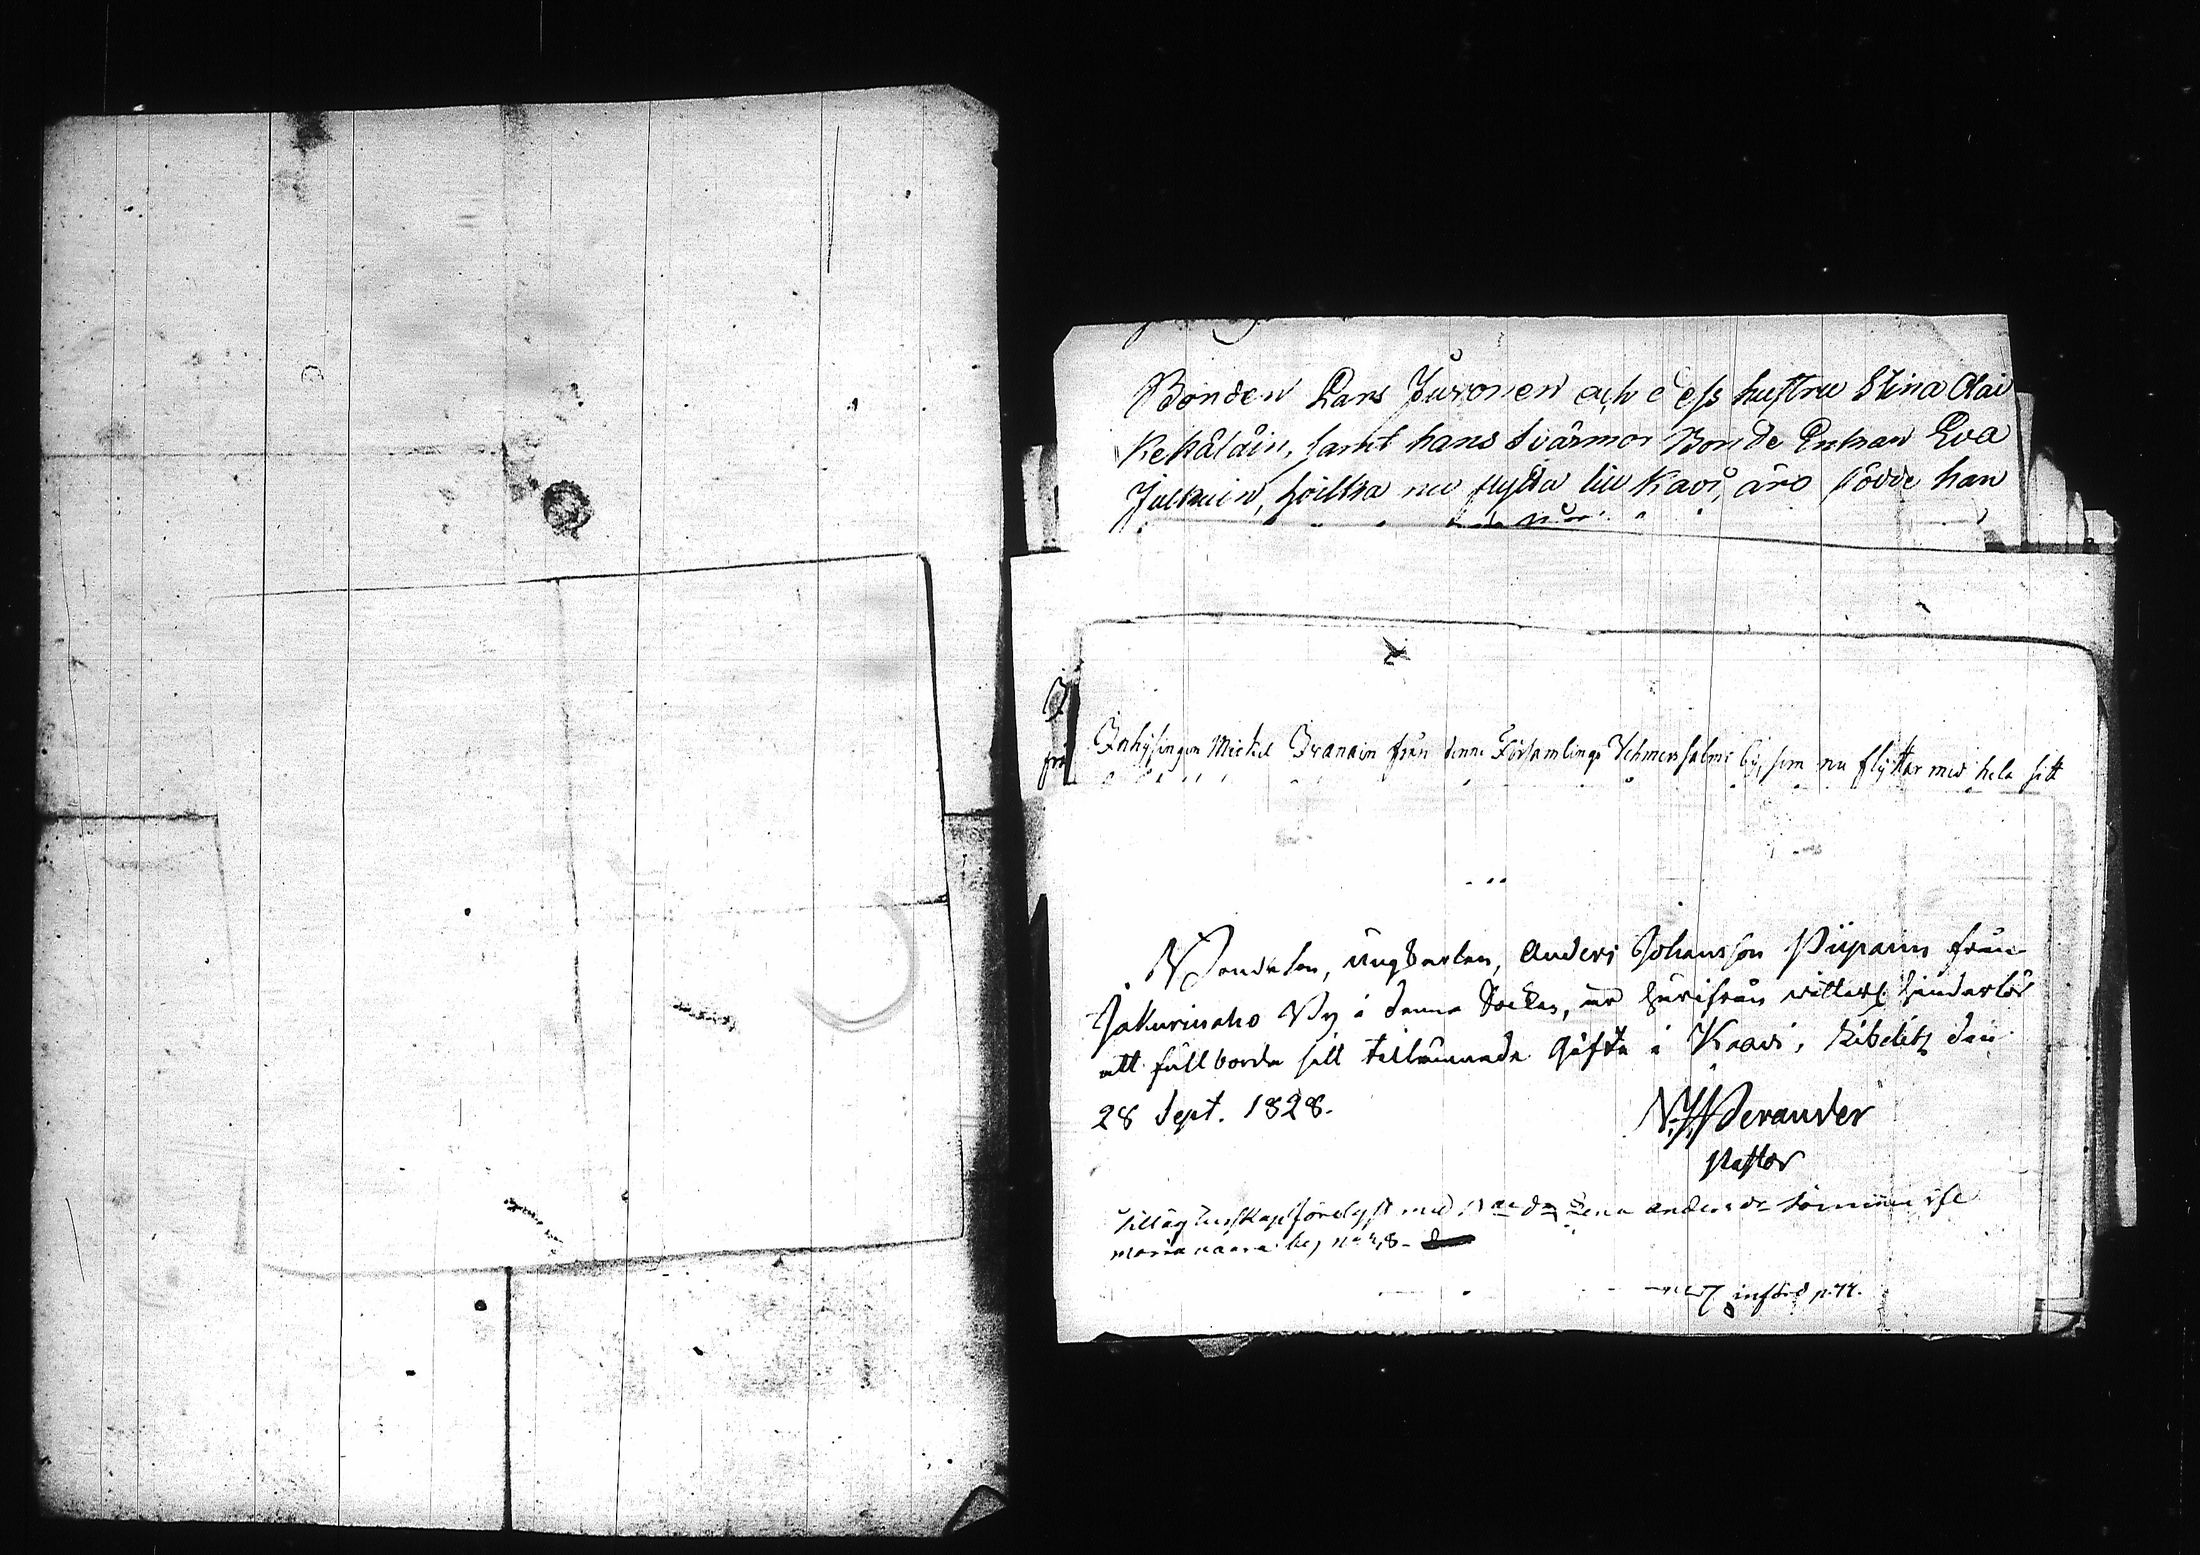 Bonden Lars Juronen och dess hustru Stina Olai
Kekäläin, samt hans Svärmor Bonde Enkan Eva
Julkuin, hvilka nu flytta till Kavi, äro födde han
I
frå
Inhysingen Michel Ivanain från denna Församlings Vehmersalmi by, som nu flyttar med hela sitt
Bondeson, ungkarlen, Anders Johansson Piipain från
Jakurinaho By i denna Socken, är härifrån hinderlös
att fullborda sitt tillämnade Gifte i Kaavi, Libelitz den
28 Sept. 1828.
N. J. Perander
Pastor
med
maria vaara by No 48.
införd p. 77.